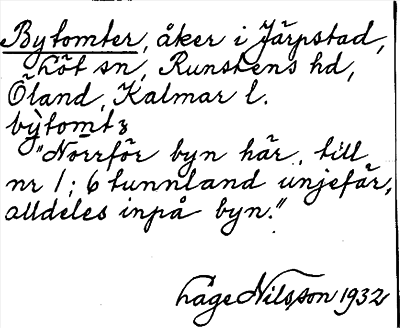 Bytomter, åker i Järpstad,
Löt sn, Runstens hd,
Öland, Kalmar l.
bỳtomtɜ
"Norrför byn här, till
nr 1; 6 tunnland unjefär,
alldeles inpå byn."
Låge Nilsson 1932